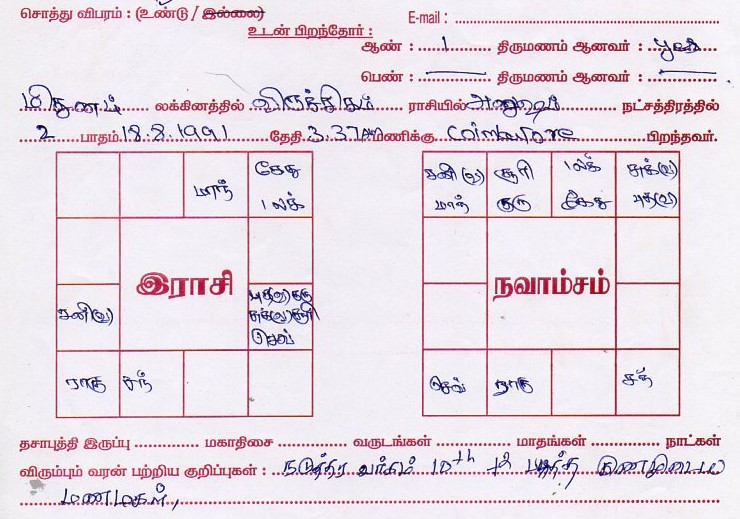 சொத்து விபரம் : (உண்டு / இல்லை)
E-mail :
உடன் பிறந்தோர் :
ஆண் : 1 திருமணம் ஆனவர் : yes
பெண் : திருமணம் ஆனவர் :
மிதுனம் லக்கினத்தில் விருச்சிகம் ராசியில் அனுஷம் நட்சத்திரத்தில்
2 பாதம் 18.8.1991 தேதி 3.37AM மணிக்கு Coimbatore பிறந்தவர்.
மாந்
கேது
லக்
இராசி
சனி(வ)
புத(வ)குரு
சுக்(வ)சூரி
செவ்
ராகு
சந்
சனி(வ) சூரி லக் சுக்(வ)
மாந் குரு கேது புத(வ)
நவாம்சம்
செவ் ராகு சந்
தசாபுத்தி இருப்பு மகாதிசை வருடங்கள் மாதங்கள் நாட்கள்
விரும்பும் வரன் பற்றிய குறிப்புகள் : நடுத்தர வர்கம் 10th +2 படித்த குணமுடைய
மணமகள்,